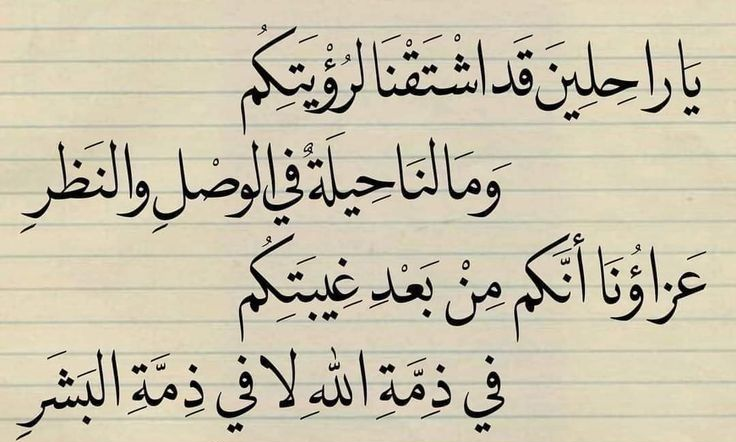 يَا راحِلِينَ قَد اشْتَقْنَا لرُؤْيَتِكُم
وَمَا لنَا حِيلَةٌ في الوصْلِ والنَظرِ
عَزاؤُنَا أنَّكم مِنْ بَعْدِ غِيبَتِكُم
في ذِمَّةِ اللهِ لا في ذِمَّةِ البَشَرِ